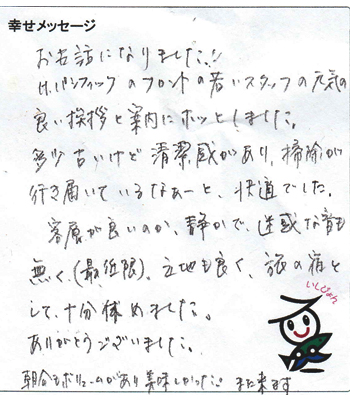 幸せメッセージ
お世話になりました!!
H.パシフィックのフロントの若いスタッフの元気の
良い挨拶と案内にホッとしました。
多少古いけど清潔感があり、掃除が
行き届いているなぁーと、快適でした。
客層が良いのか、静かで、迷惑な音も
無く、(最低限)、立地も良く、旅の宿と
して、十分休めました。
ありがとうございました。
朝食もボリュームがあり美味しかった!また来ます